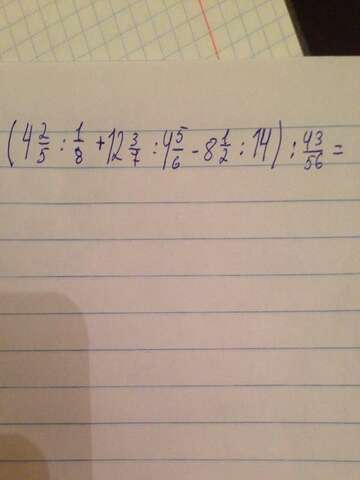 (4 2/5 : 1/8 + 12 3/7 : 4 5/6 - 8 1/2 : 14) : 43/56 =